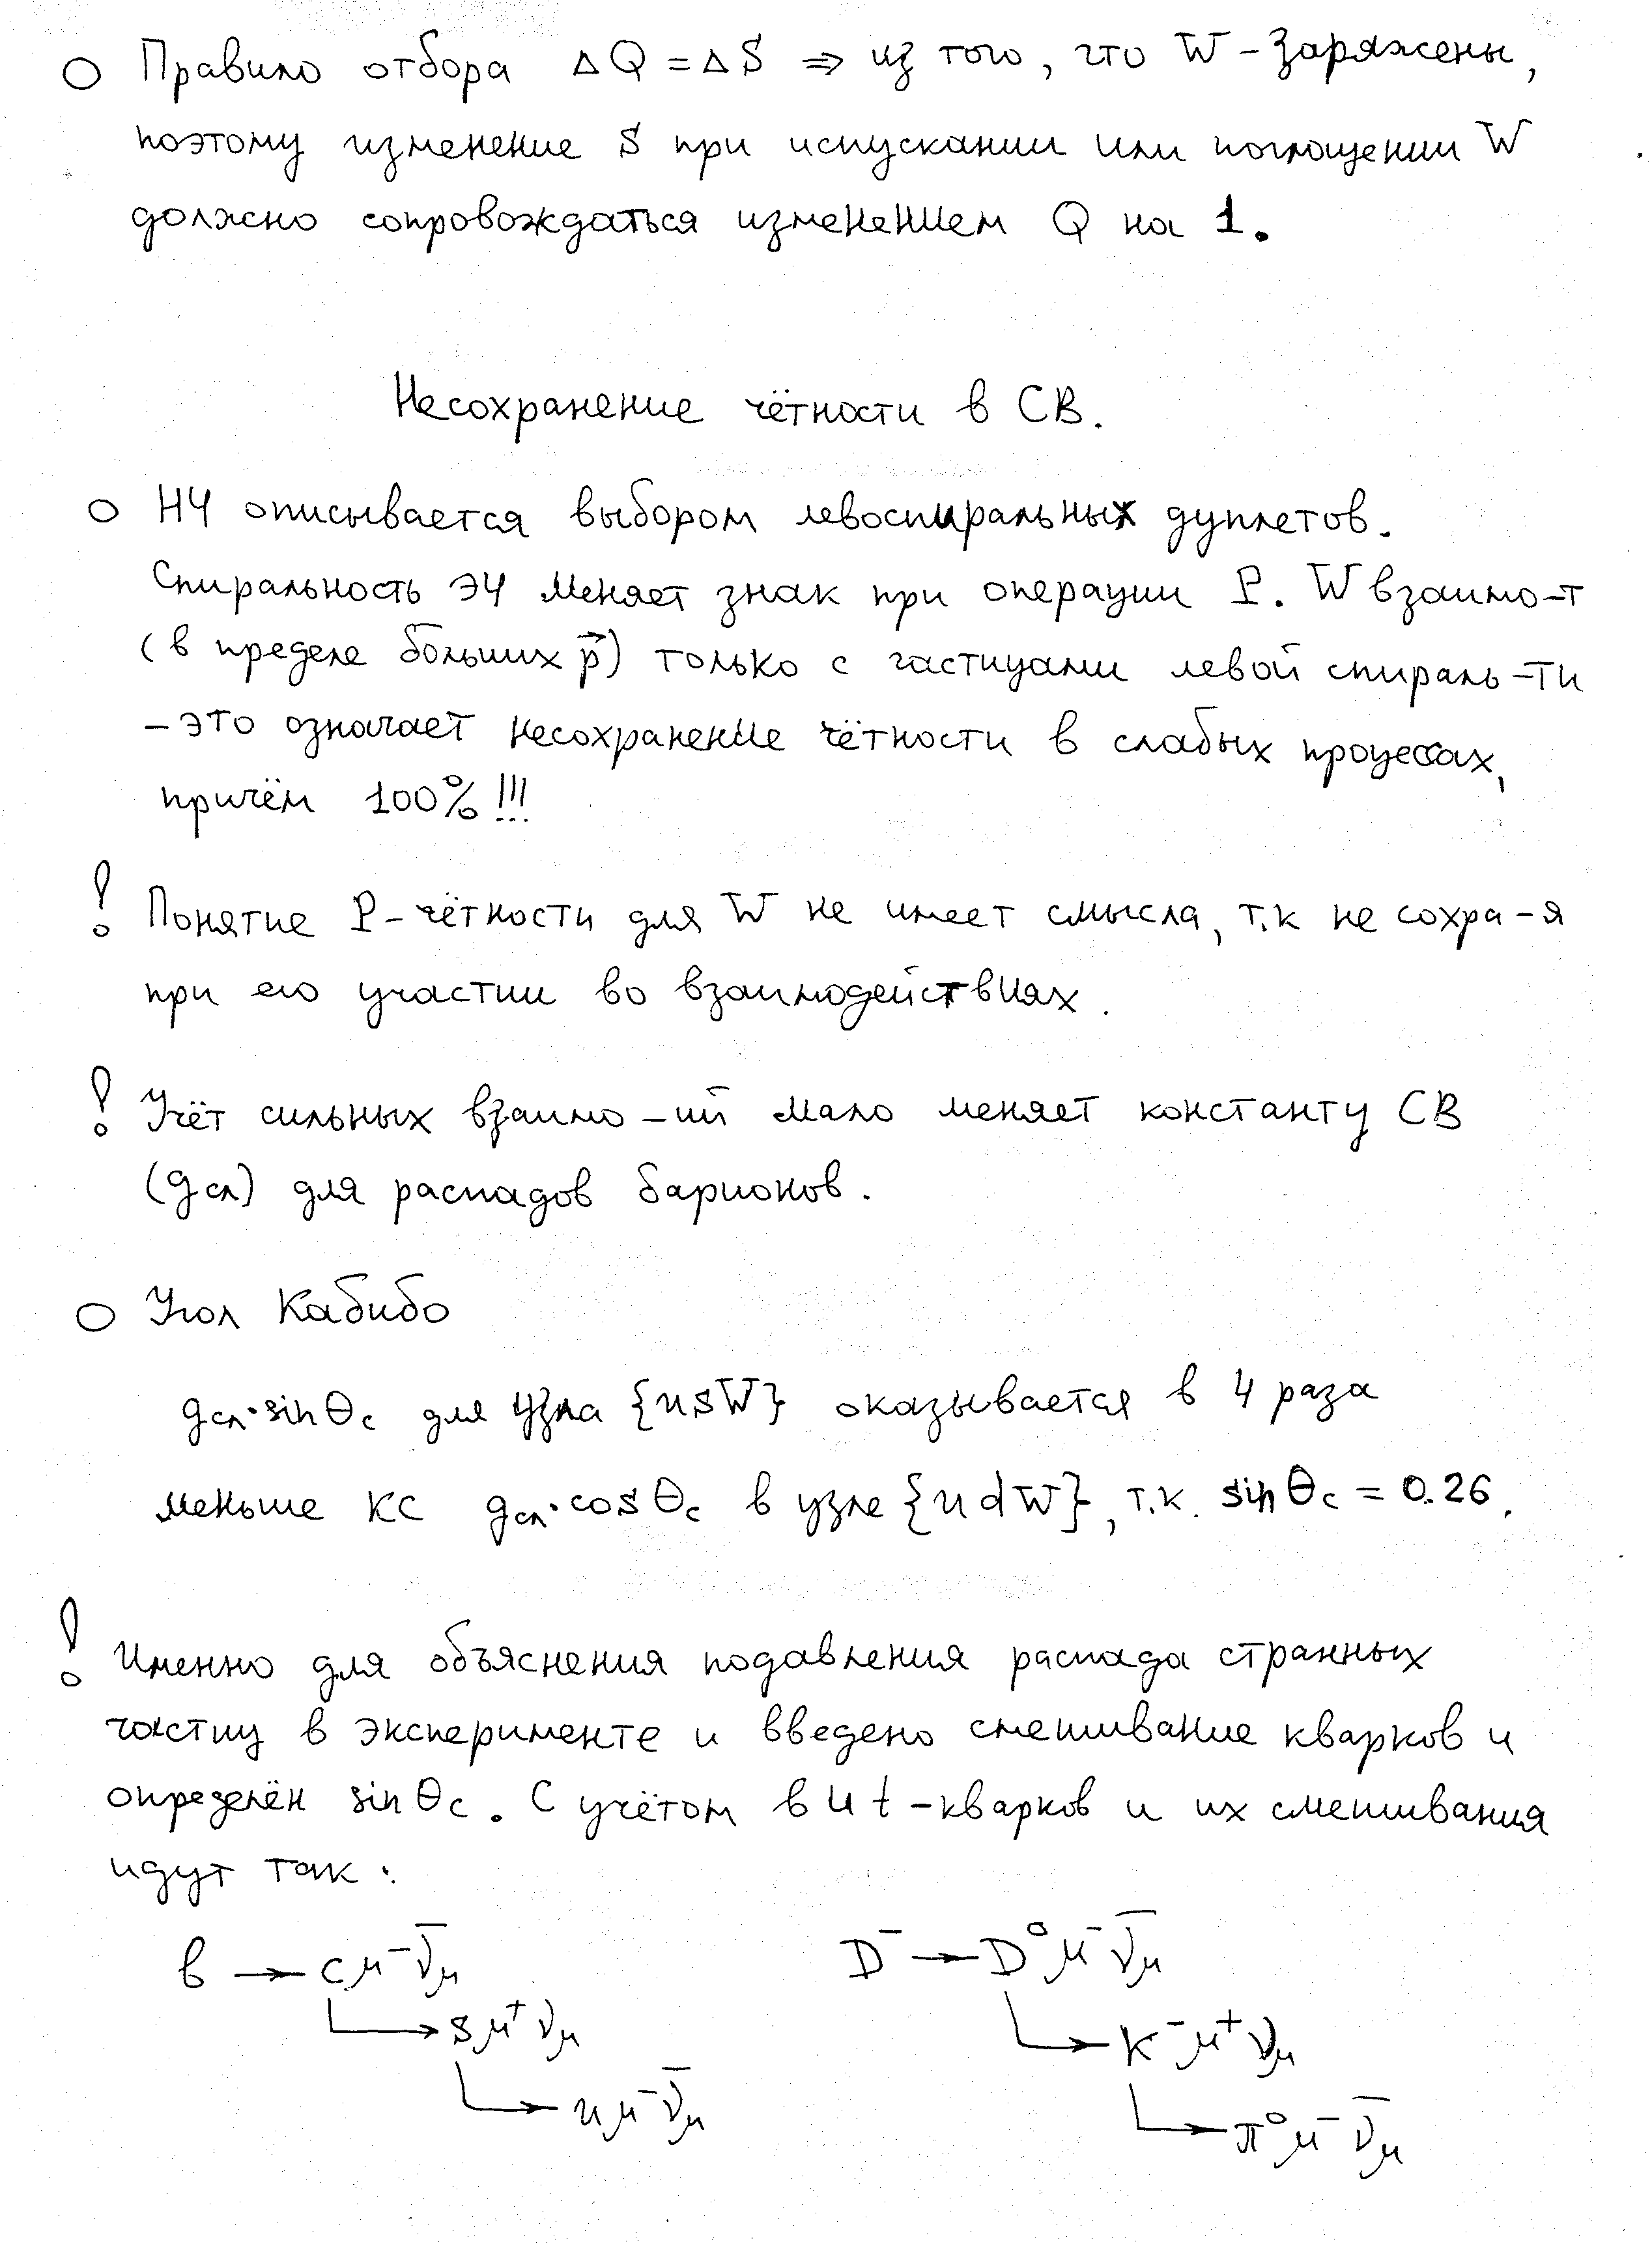 ○ Правило отбора ΔQ = ΔS ⇒ из того, что W - заряжены,
поэтому изменение S при испускании или поглощении W
должно сопровождаться изменением Q на 1.
Несохранение чётности в СВ.
○ НЧ описывается выбором левоспиральных дуплетов.
Спиральность ЭЧ меняет знак при операции P. W взаимо-т
(в пределе больших p⃗) только с частицами левой спираль-ти
- это означает несохранение чётности в слабых процессах,
причём 100% !!!
! Понятие P-чётности для W не имеет смысла, т.к не сохра-я
при его участии во взаимодействиях.
! Учёт сильных взаимо-ий мало меняет константу СВ
(gсл) для распадов барионов.
○ Угол Кабибо
gсл·sinθc для узла {usW} оказывается в 4 раза
меньше КС gсл·cosθc в узле {udW}, т.к. sinθc = 0.26.
! Именно для объяснения подавления распада странных
частиц в эксперименте и введено смешивание кварков и
определён sinθc. С учётом b и t-кварков и их смешивания
идут так:
b → cμ⁻ν̄μ D⁻ → D⁰μ⁻ν̄μ
↳ sμ⁺νμ ↳ K⁻μ⁺νμ
↳ uμ⁻ν̄μ ↳ π⁰μ⁻ν̄μ